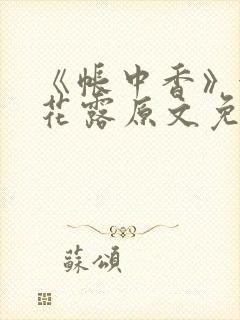 《帐中香》
花露原文免
蘇頌